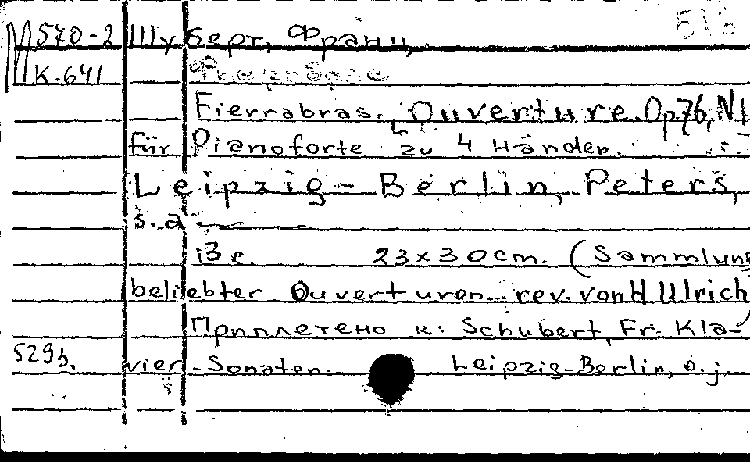 М 570-2 Шуберт, Франц,
К-641
Fierrabras., Ouverture. Op 76, N1
für Pianoforte zu 4 Händen.
Leipzig - Berlin, Peters,
s.a.
13 c. 23x30cm. (Sammlung
beliebter Ouverturen. rev. von H Ulrich)
Приплетено к: Schubert, Fr. Kla-
vier-Sonaten. Leipzig-Berlin, o.j.